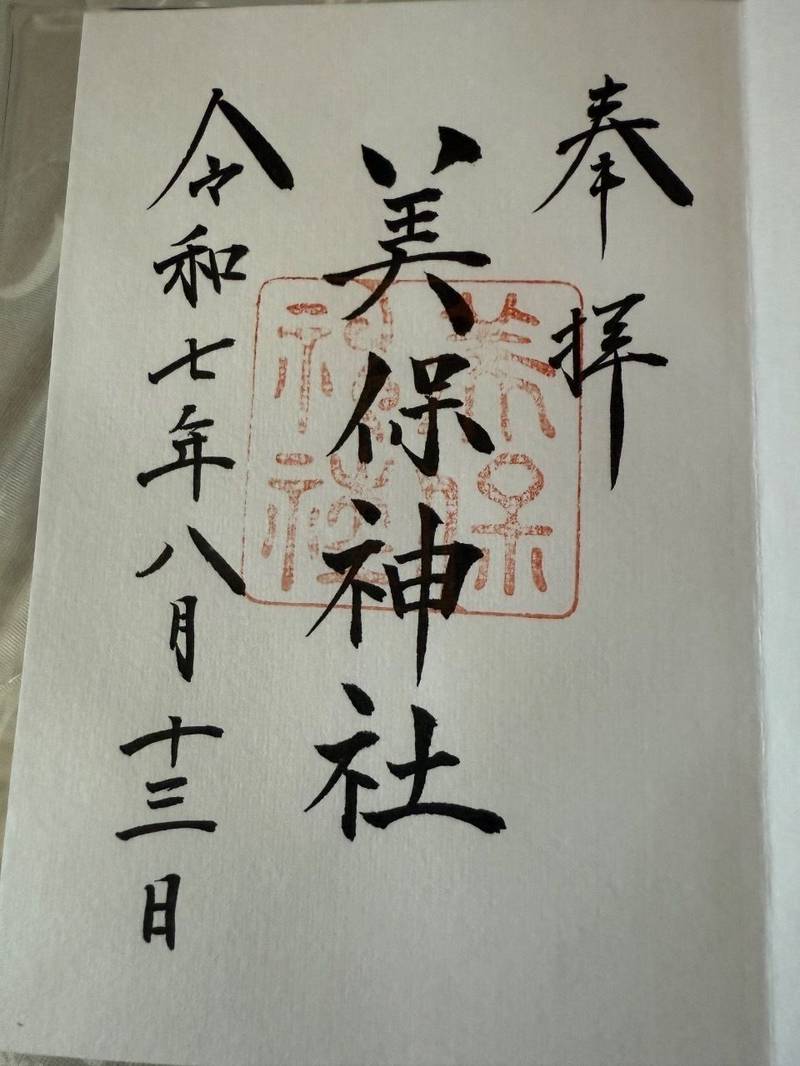 奉拝
美保神社
令和七年八月十三日
美保
神社